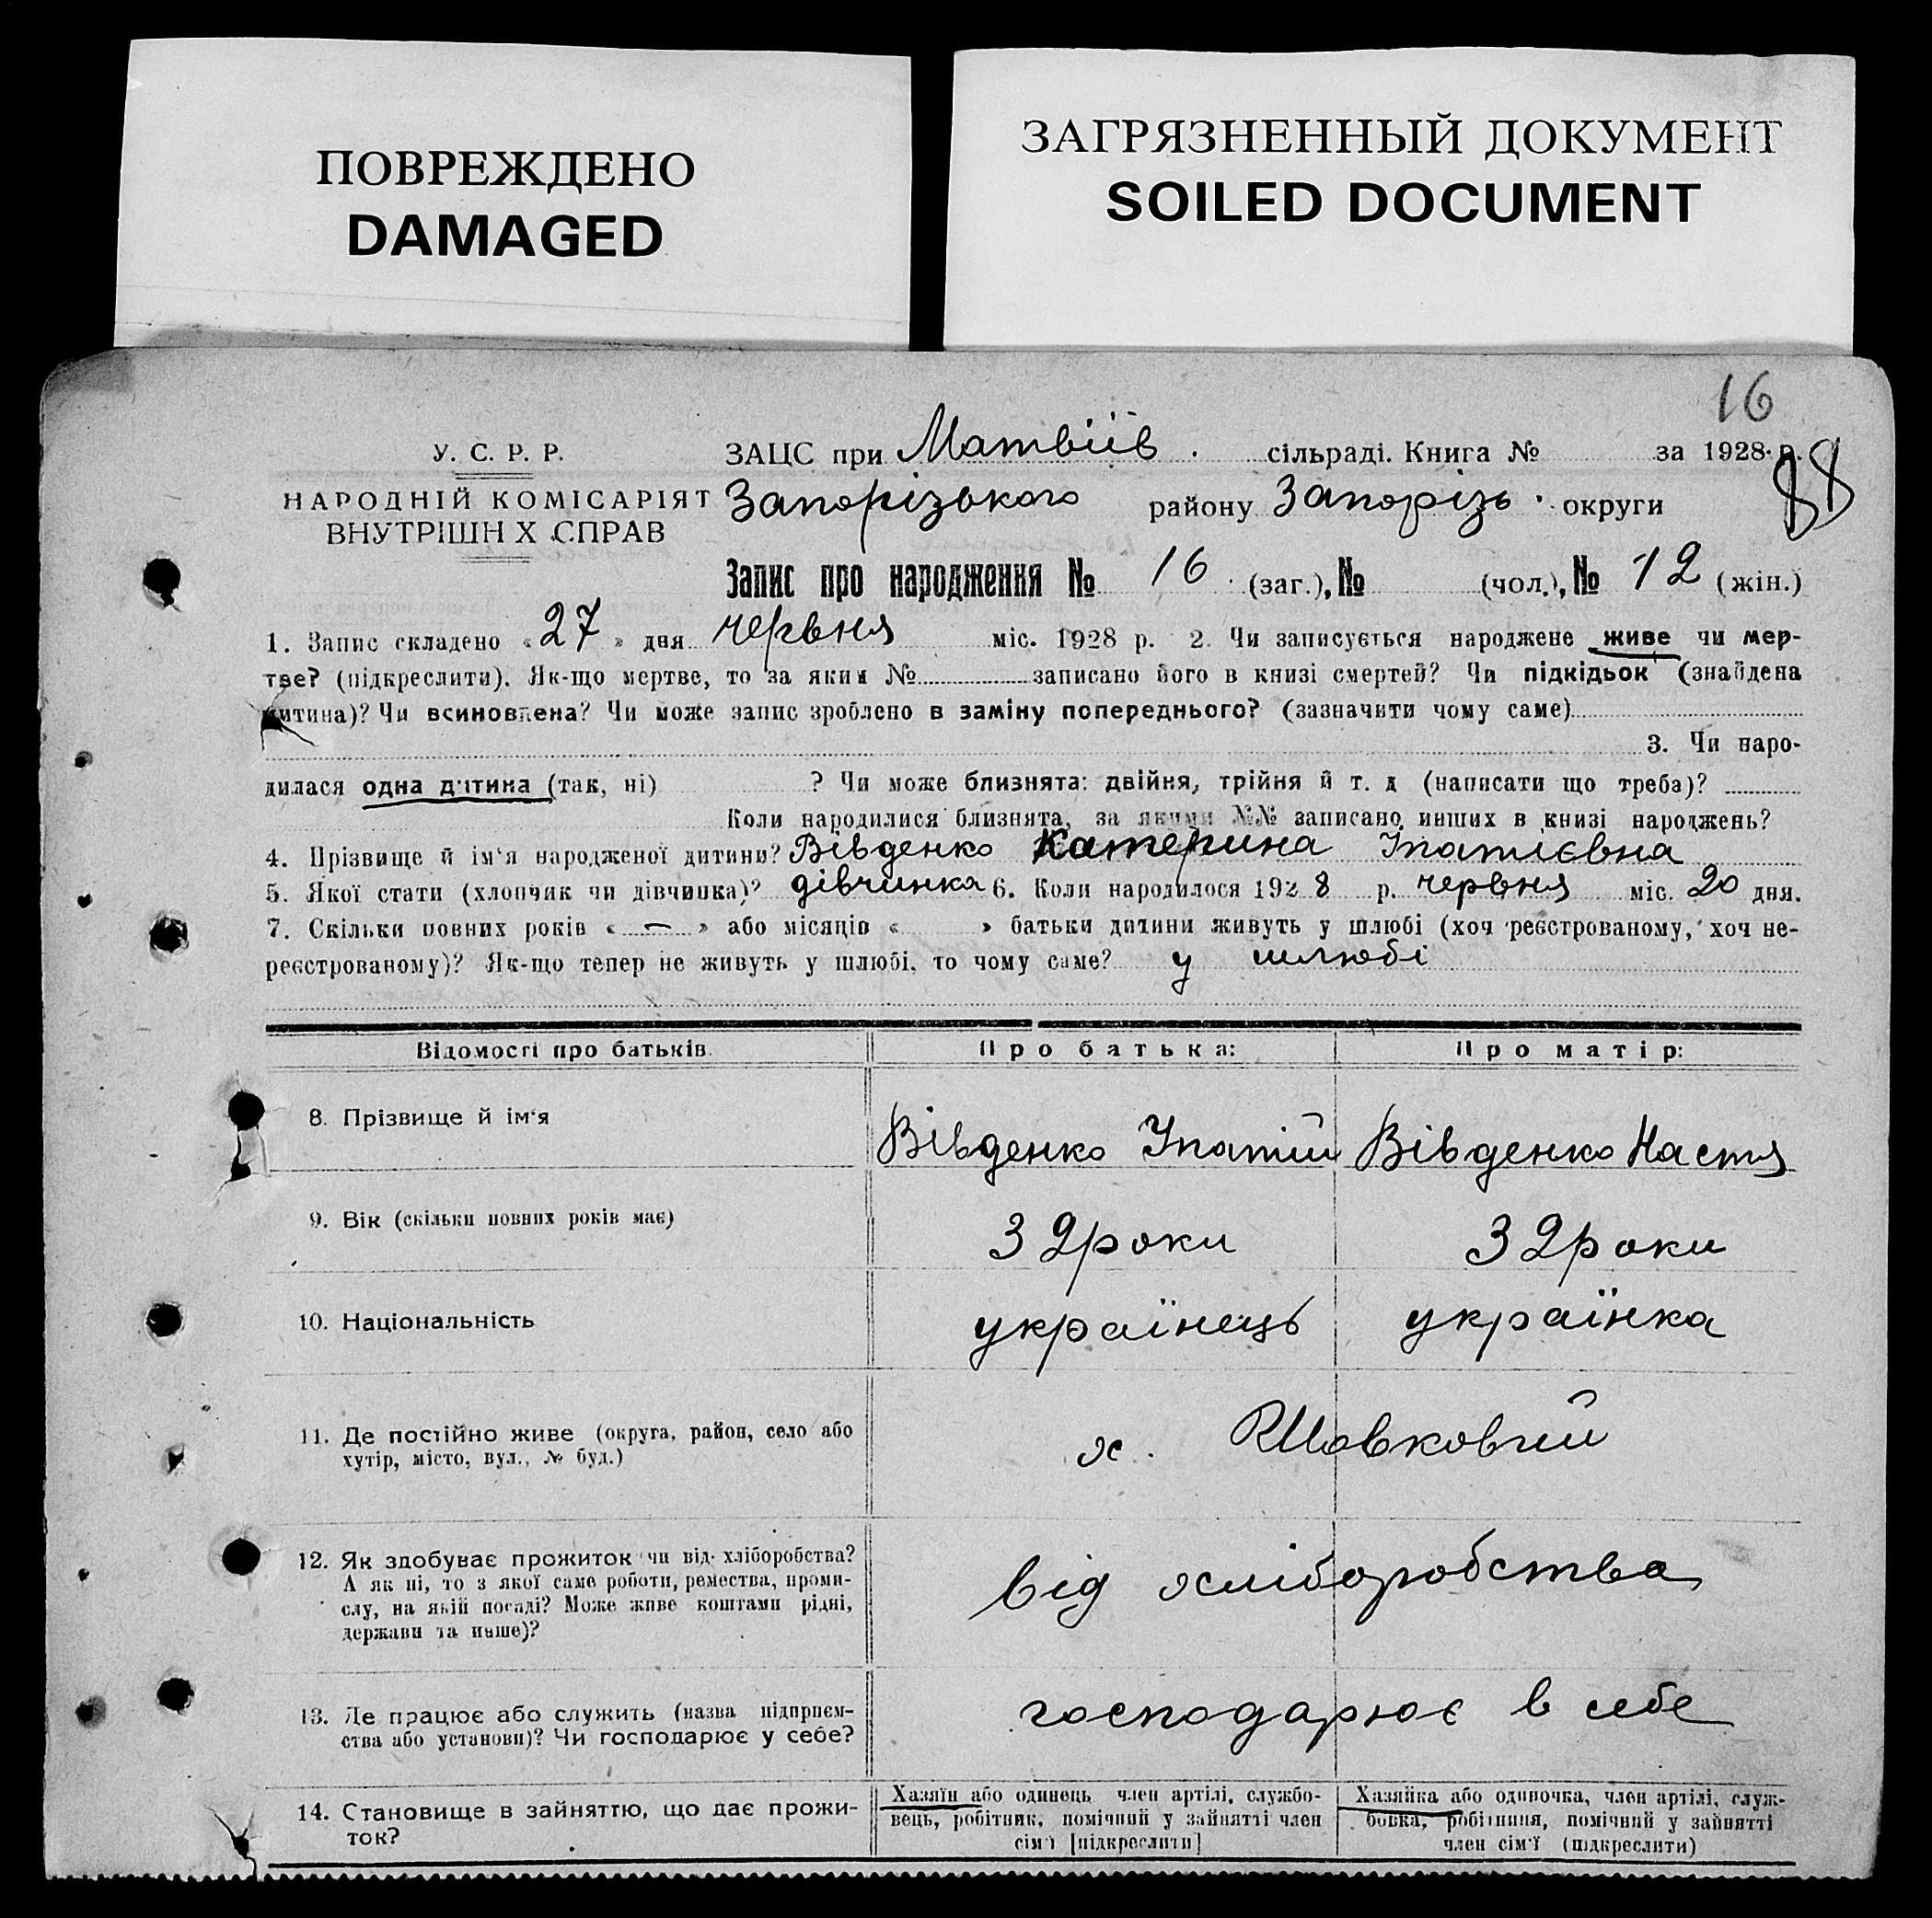 ПОВРЕЖДЕНО
DAMAGED
ЗАГРЯЗНЕННЫЙ ДОКУМЕНТ
SOILED DOCUMENT
16
88
У. С. Р. Р.
НАРОДНІЙ КОМІСАРІЯТ
ВНУТРІШН Х СПРАВ
ЗАЦС при Матвіїв. сільраді. Книга № за 1928 р.
Запорізького району Запорізь. округи
Запис про народження № 16 (заг.), № (чол.), № 12 (жін.)
1. Запис складено «27» дня червня міс. 1928 р. 2. Чи записується народжене живе чи мер-
тве? (підкреслити). Як-що мертве, то за яким № записано його в книзі смертей? Чи підкідьок (знайдена
дитина)? Чи всиновлена? Чи може запис зроблено в заміну попереднього? (зазначити чому саме)
3. Чи наро-
дилася одна дитина (так, ні) ? Чи може близнята: двійня, трійня й т. д (написати що треба)?
Коли народилися близнята, за якими №№ записано инших в книзі народжень?
4. Прізвище й ім'я народженої дитини? Вівденко Катерина Іпатієвна
5. Якої стати (хлопчик чи дівчинка)? дівчинка 6. Коли народилося 1928 р. червня міс. 20 дня.
7. Скільки повних років «—» або місяців « » батьки дитини живуть у шлюбі (хоч реєстрованому, хоч не-
реєстрованому)? Як-що тепер не живуть у шлюбі, то чому саме? у шлюбі
Відомості про батьків Про батька: Про матір:
8. Прізвище й ім'я Вівденко Іпатій Вівденко Настя
9. Вік (скільки повних років має) 32 роки 32 роки
10. Національність українець українка
11. Де постійно живе (округа, район, село або
хутір, місто, вул., № буд.) х. Шовковий
12. Як здобуває прожиток чи від хліборобства?
А як ні, то з якої саме роботи, ремества, проми-
слу, на якій посаді? Може живе коштами рідні,
держави та инше)? від хліборобства
13. Де працює або служить (назва підприєм-
ства або установи)? Чи господарює у себе? господарює в себе
14. Становище в зайняттю, що дає прожи-
ток?
Хазяїн або одинець член артілі, службо-
вець, робітник, помічний у зайнятті член
сім'ї [підкреслити]
Хазяйка або одиночка, член артілі, служ-
бовка, робітниця, помічний у зайнятті
член сім'ї (підкреслити)